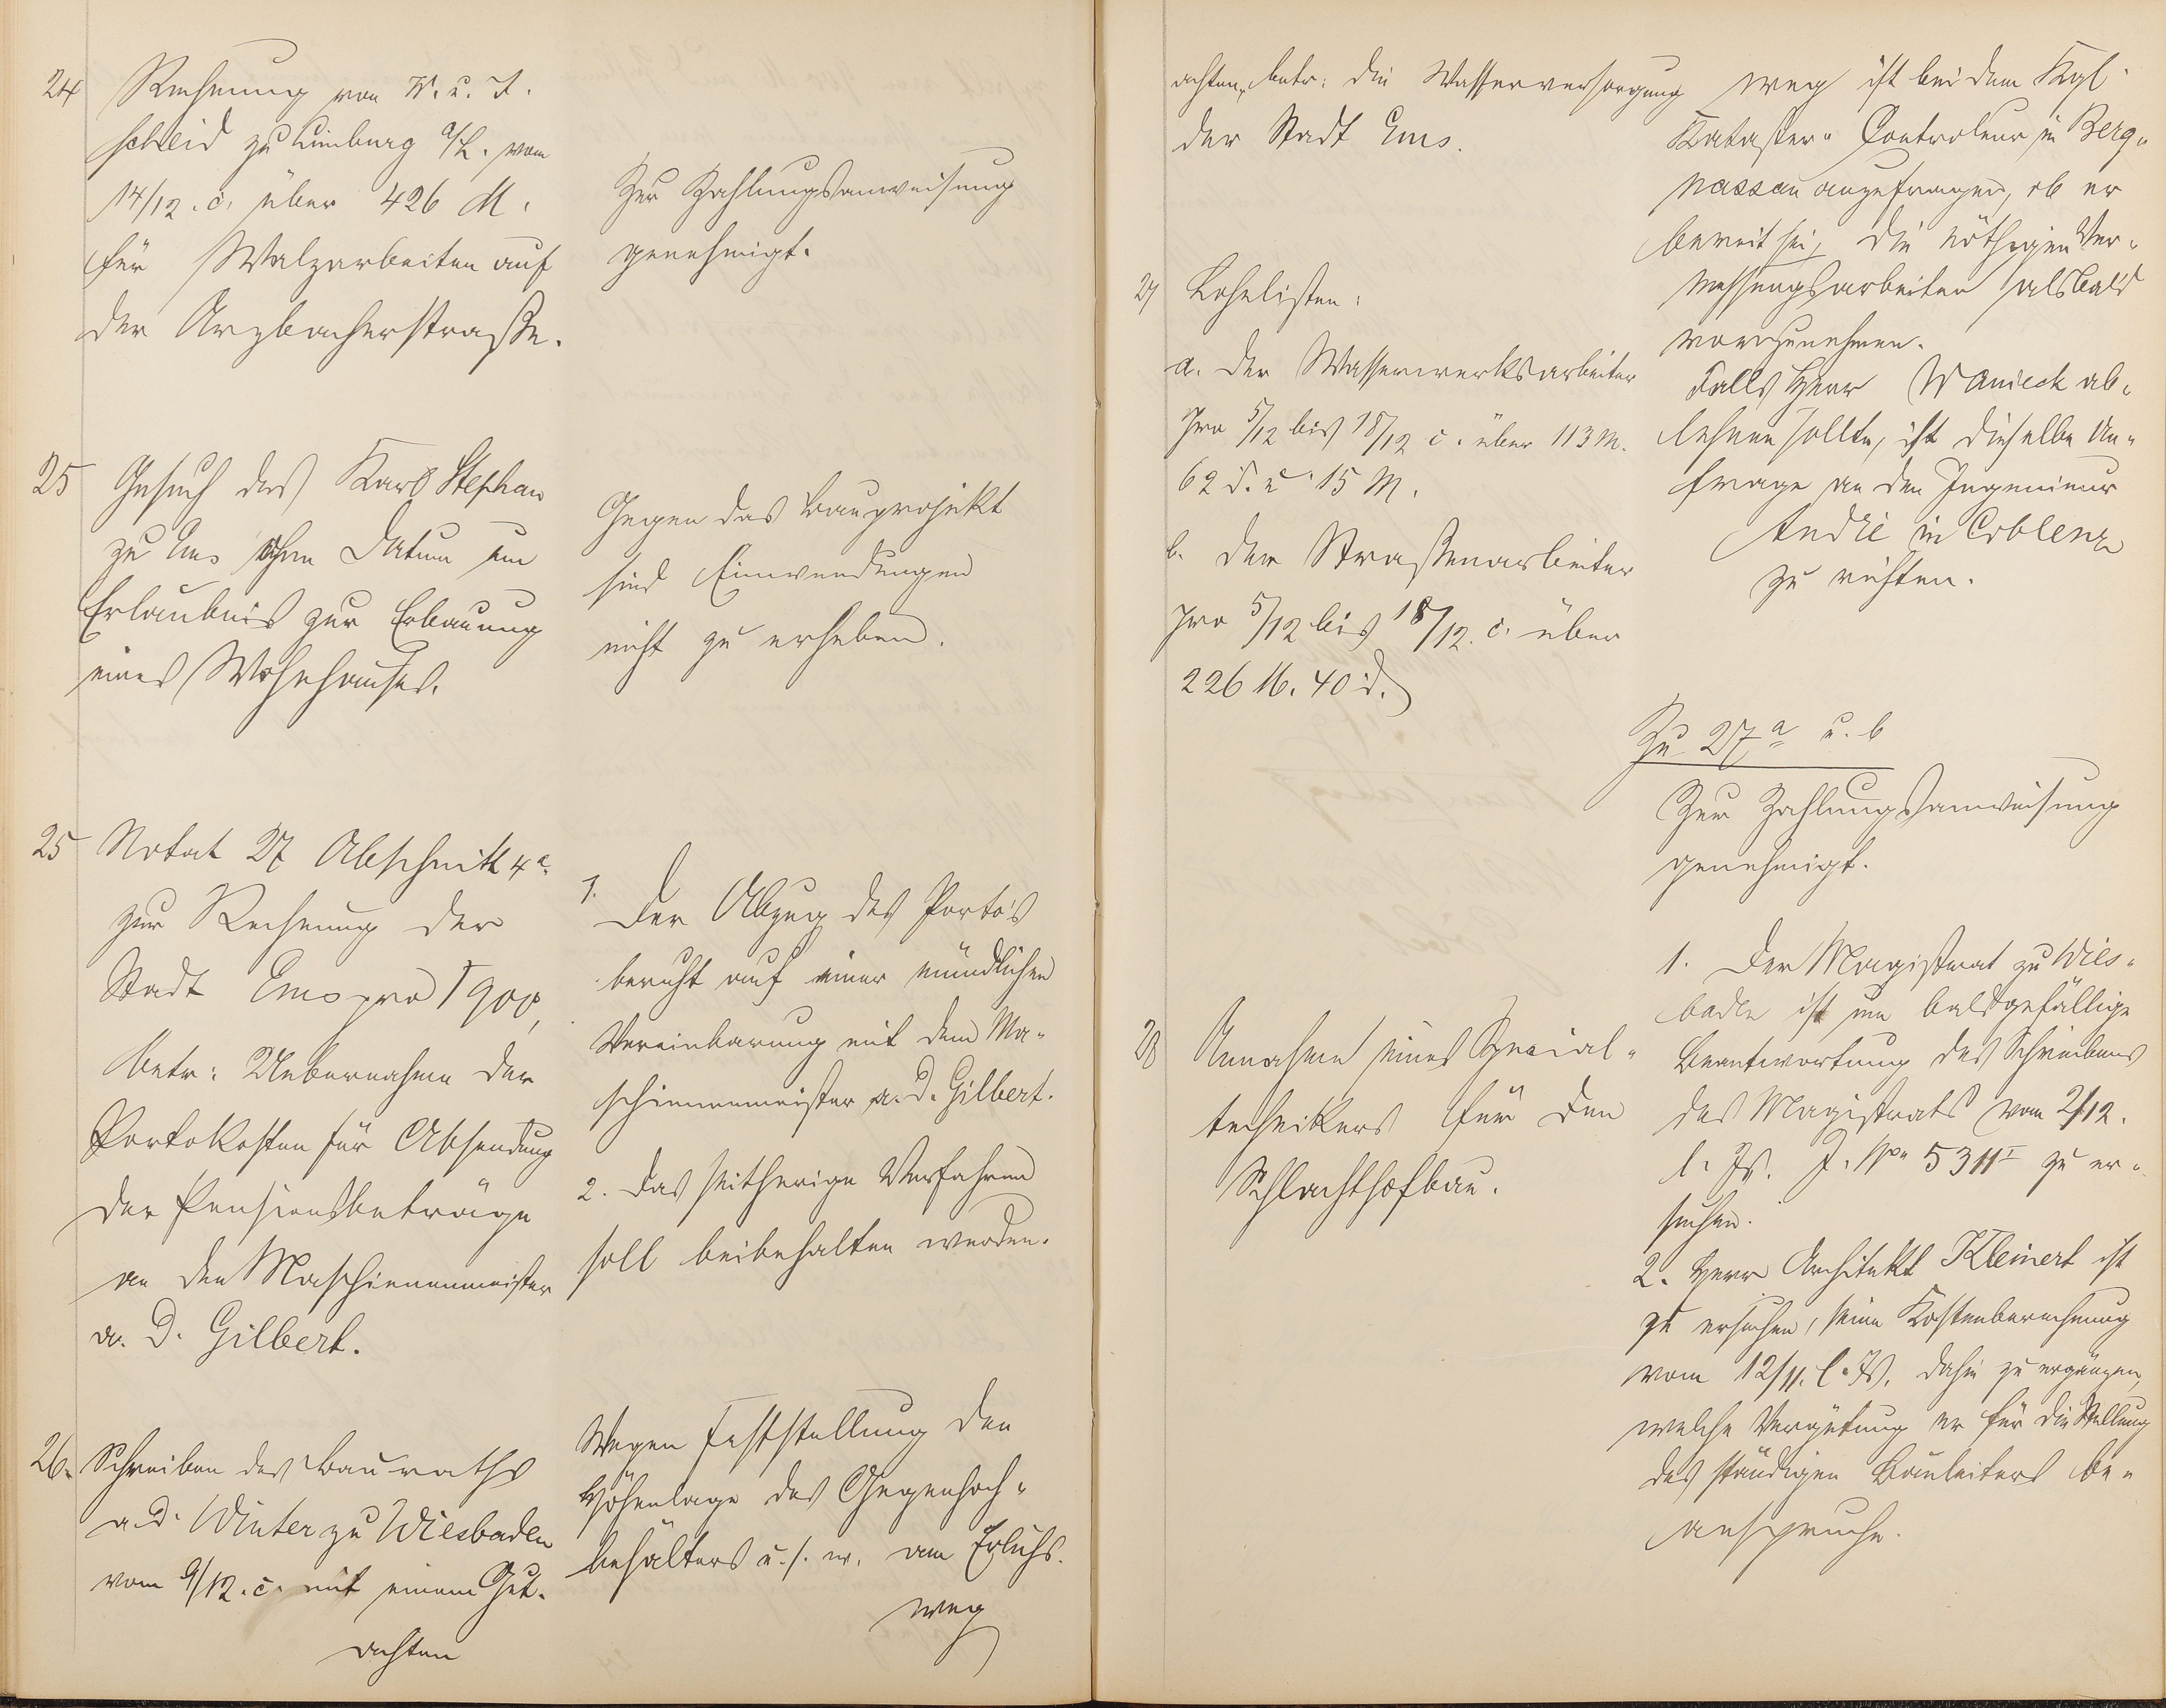 24 Rechnung von W. u. J.
Scheid zu Limburg a/L. vom
14/12. c. über 426 M.
für Walzarbeiten auf
der Arzbacherstraße.
Zur Zahlungsanweisung
genehmigt.
25 Gesuch des Karl Stephan
zu Ems ohne Datum um
Erlaubnis zur Erbauung
eines Wohnhauses.
Gegen das Bauprojekt
sind Einwendungen
nicht zu erheben.
25 Notat 27 Abschnitt 4a
zur Rechnung der
Stadt Ems pro 1900,
betr: Uebernahme der
Portokosten für Absendung
der Pensionsbeträge
an den Maschinenmeister
a. D. Gilbert.
1. Der Abzug des Porto's
beruht auf einer mündlichen
Vereinbarung mit dem Ma-
schinenmeister a. D. Gilbert.
2. Das seitherige Verfahren
soll beibehalten werden.
26. Schreiben des Bauraths
a. D. Winter zu Wiesbaden
vom 9/12. c. mit einem Gut-
achten
Wegen Feststellung der
Höhenlage des Gegenhoch-
behälters u. s. w. am Erlichs-
weg
achten, betr: die Wasserversorgung
der Stadt Ems.
27 Lohnlisten:
a. der Wasserwerksarbeiter
pro 5/12 bis 18/12 c. über 113 M.
62 d. u. 15 M.
b. der Straßenarbeiter
pro 5/12 bis 18/12. c. über
226 M. 40 d.
28 Annahme eines Spezial-
technikers für den
Schlachthofbau.
weg ist bei dem Kgl.
Kataster-Controleur in Berg-
nassau anzufragen, ob er
bereit sei, die nöthigen Ver-
messungsarbeiten alsbald
vorzunehmen.
Falls Herr Wanieck ab-
lehnen sollte, ist dieselbe An-
frage an den Ingenieur
André in Coblenz
zu richten.
Zu 27a u. b
Zur Zahlungsanweisung
genehmigt.
1. Der Magistrat zu Wies-
baden ist um baldgefällige
Beantwortung des Schreibens
des Magistrats vom 2/12.
l. Js. J. No 5311I zu er-
suchen.
2. Herr Architekt Kleinert ist
zu ersuchen, seine Kostenberechnung
vom 12/11. l. Js. dahin zu ergänzen,
welche Vergütung er für die Stellung
des ständigen Bauleiters be-
anspruche.